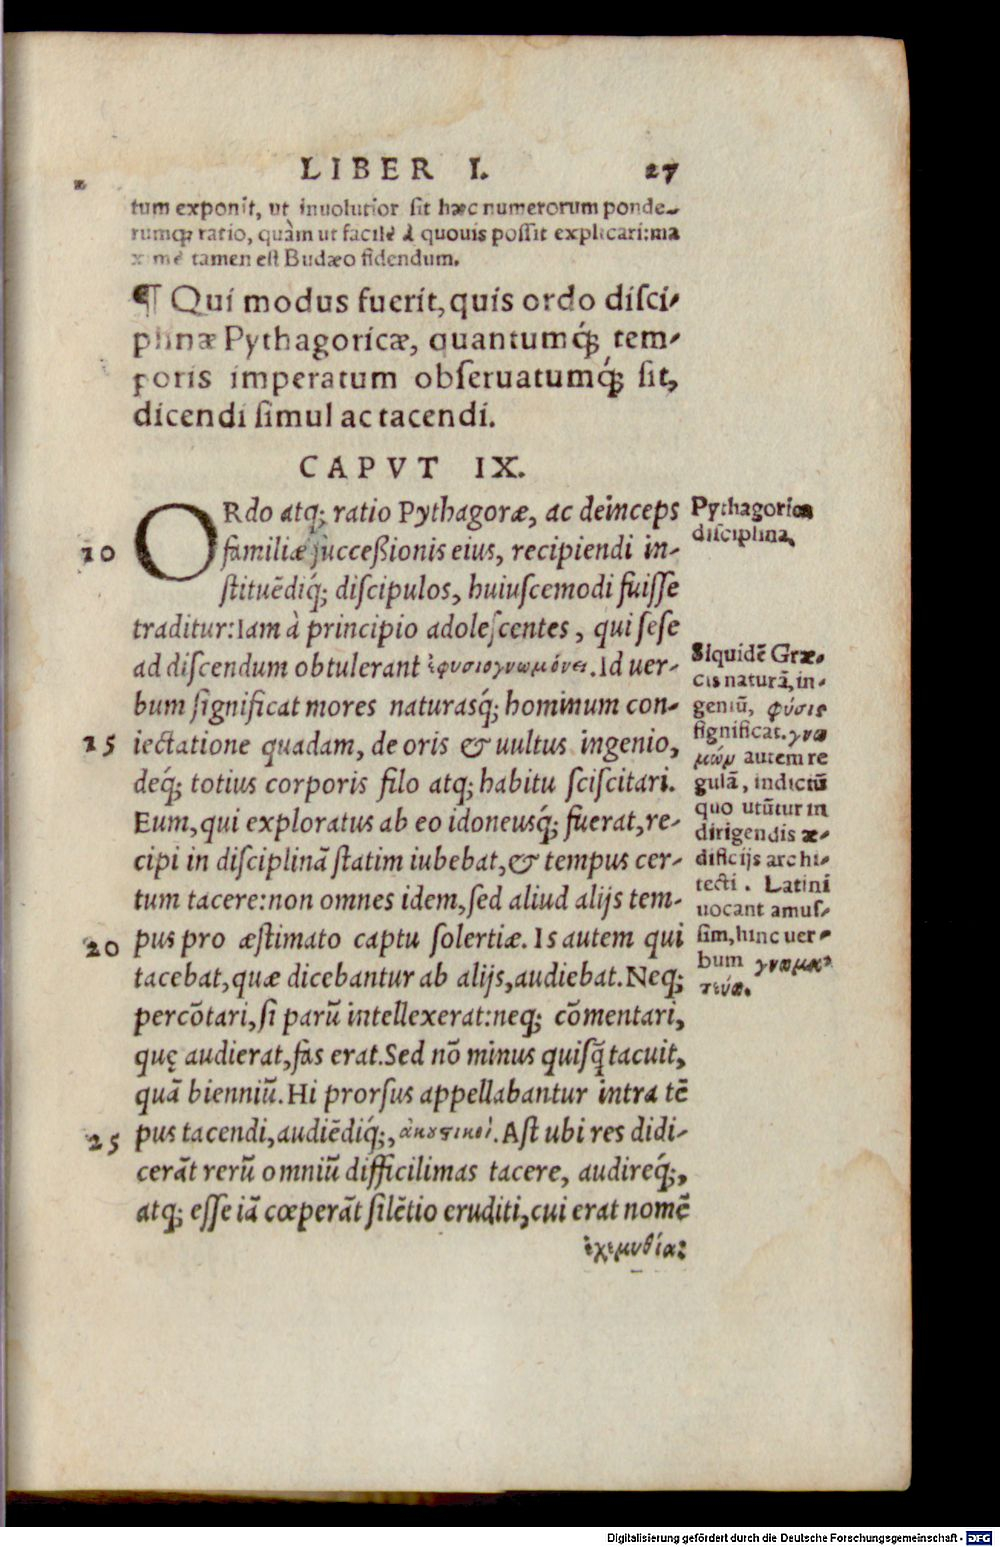 LIBER I. 27
tum exponit, ut inuolutior sit hæc numerorum ponde-
rumq; ratio, quàm ut facilè à quouis possit explicari: ma
xime tamen est Budæo fidendum.
¶ Qui modus fuerit, quis ordo disci-
plinæ Pythagoricæ, quantumq́; tem-
poris imperatum obseruatumq́; sit,
dicendi simul ac tacendi.
CAPVT IX.
ORdo atq; ratio Pythagoræ, ac deinceps
10 familiæ successionis eius, recipiendi in-
stituēdiq́; discipulos, huiuscemodi fuisse
traditur: Iam à principio adolescentes, qui sese
ad discendum obtulerant ἐφυσιογνωμόνει. Id uer-
bum significat mores naturasq́; hominum con-
15 iectatione quadam, de oris & uultus ingenio,
deq́; totius corporis filo atq; habitu sciscitari.
Eum, qui exploratus ab eo idoneusq́; fuerat, re-
cipi in disciplinā statim iubebat, & tempus cer-
tum tacere: non omnes idem, sed aliud alijs tem-
20 pus pro æstimato captu solertiæ. Is autem qui
tacebat, quæ dicebantur ab alijs, audiebat. Neq;
percōtari, si parū intellexerat: neq; cōmentari,
quę audierat, fas erat. Sed nō minus quisq̃ tacuit,
quā bienniū. Hi prorsus appellabantur intra tē
25 pus tacendi, audiēdiq́;, ἀκουστικοί. Ast ubi res didi-
cerāt rerū omniū difficilimas tacere, audireq́;,
atq; esse iā cœperāt silētio eruditi, cui erat nomē
ἐχεμυθία:
Pythagorica
disciplina.
Siquidē Græ-
cis naturā, in-
geniū, φύσις
significat. γνω
μών autem re
gulā, indictū
quo utūtur in
dirigendis æ-
dificijs archi-
tecti. Latini
uocant amus-
sim, hinc uer-
bum γνωμα-
τεύω.
Digitalisierung gefördert durch die Deutsche Forschungsgemeinschaft - DFG